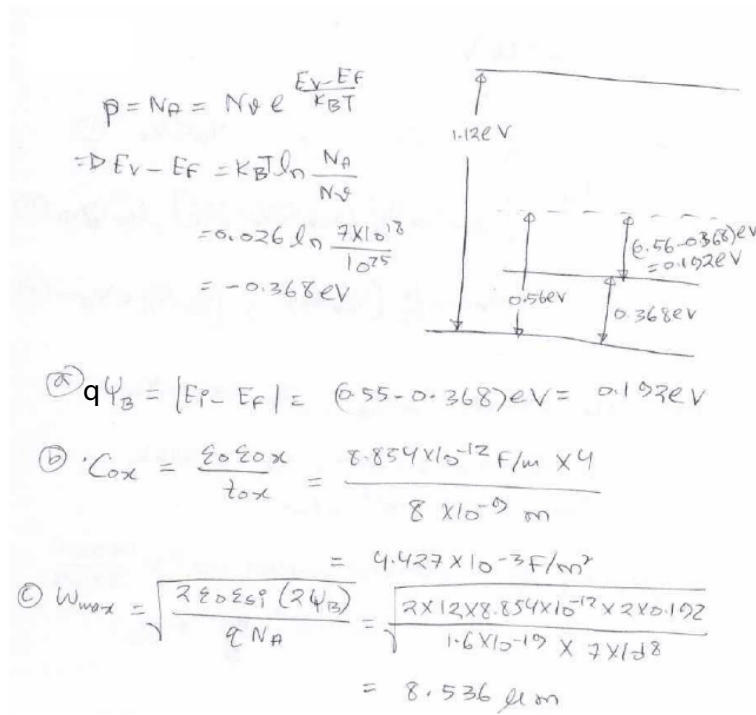 p = N_A = N_v e^{(E_V - E_F)/(K_BT)}
⇒ E_V - E_F = K_BT ln N_A/N_v
= 0.026 ln 7×10^18/10^25
= -0.368eV
1.12eV
0.56eV
(0.56-0.368)eV
= 0.192eV
0.368eV
(a) qΨ_B = |E_i - E_F| = (0.55-0.368)eV = 0.192eV
(b) C_ox = ε_0 ε_ox / t_ox = 8.854×10^-12 F/m × 4 / 8×10^-9 m
= 4.427×10^-3 F/m²
(c) W_max = √(2ε_0ε_si (2Ψ_B) / q N_A) = √(2×12×8.854×10^-12×2×0.192 / 1.6×10^-19 × 7×10^18)
= 8.536 μm